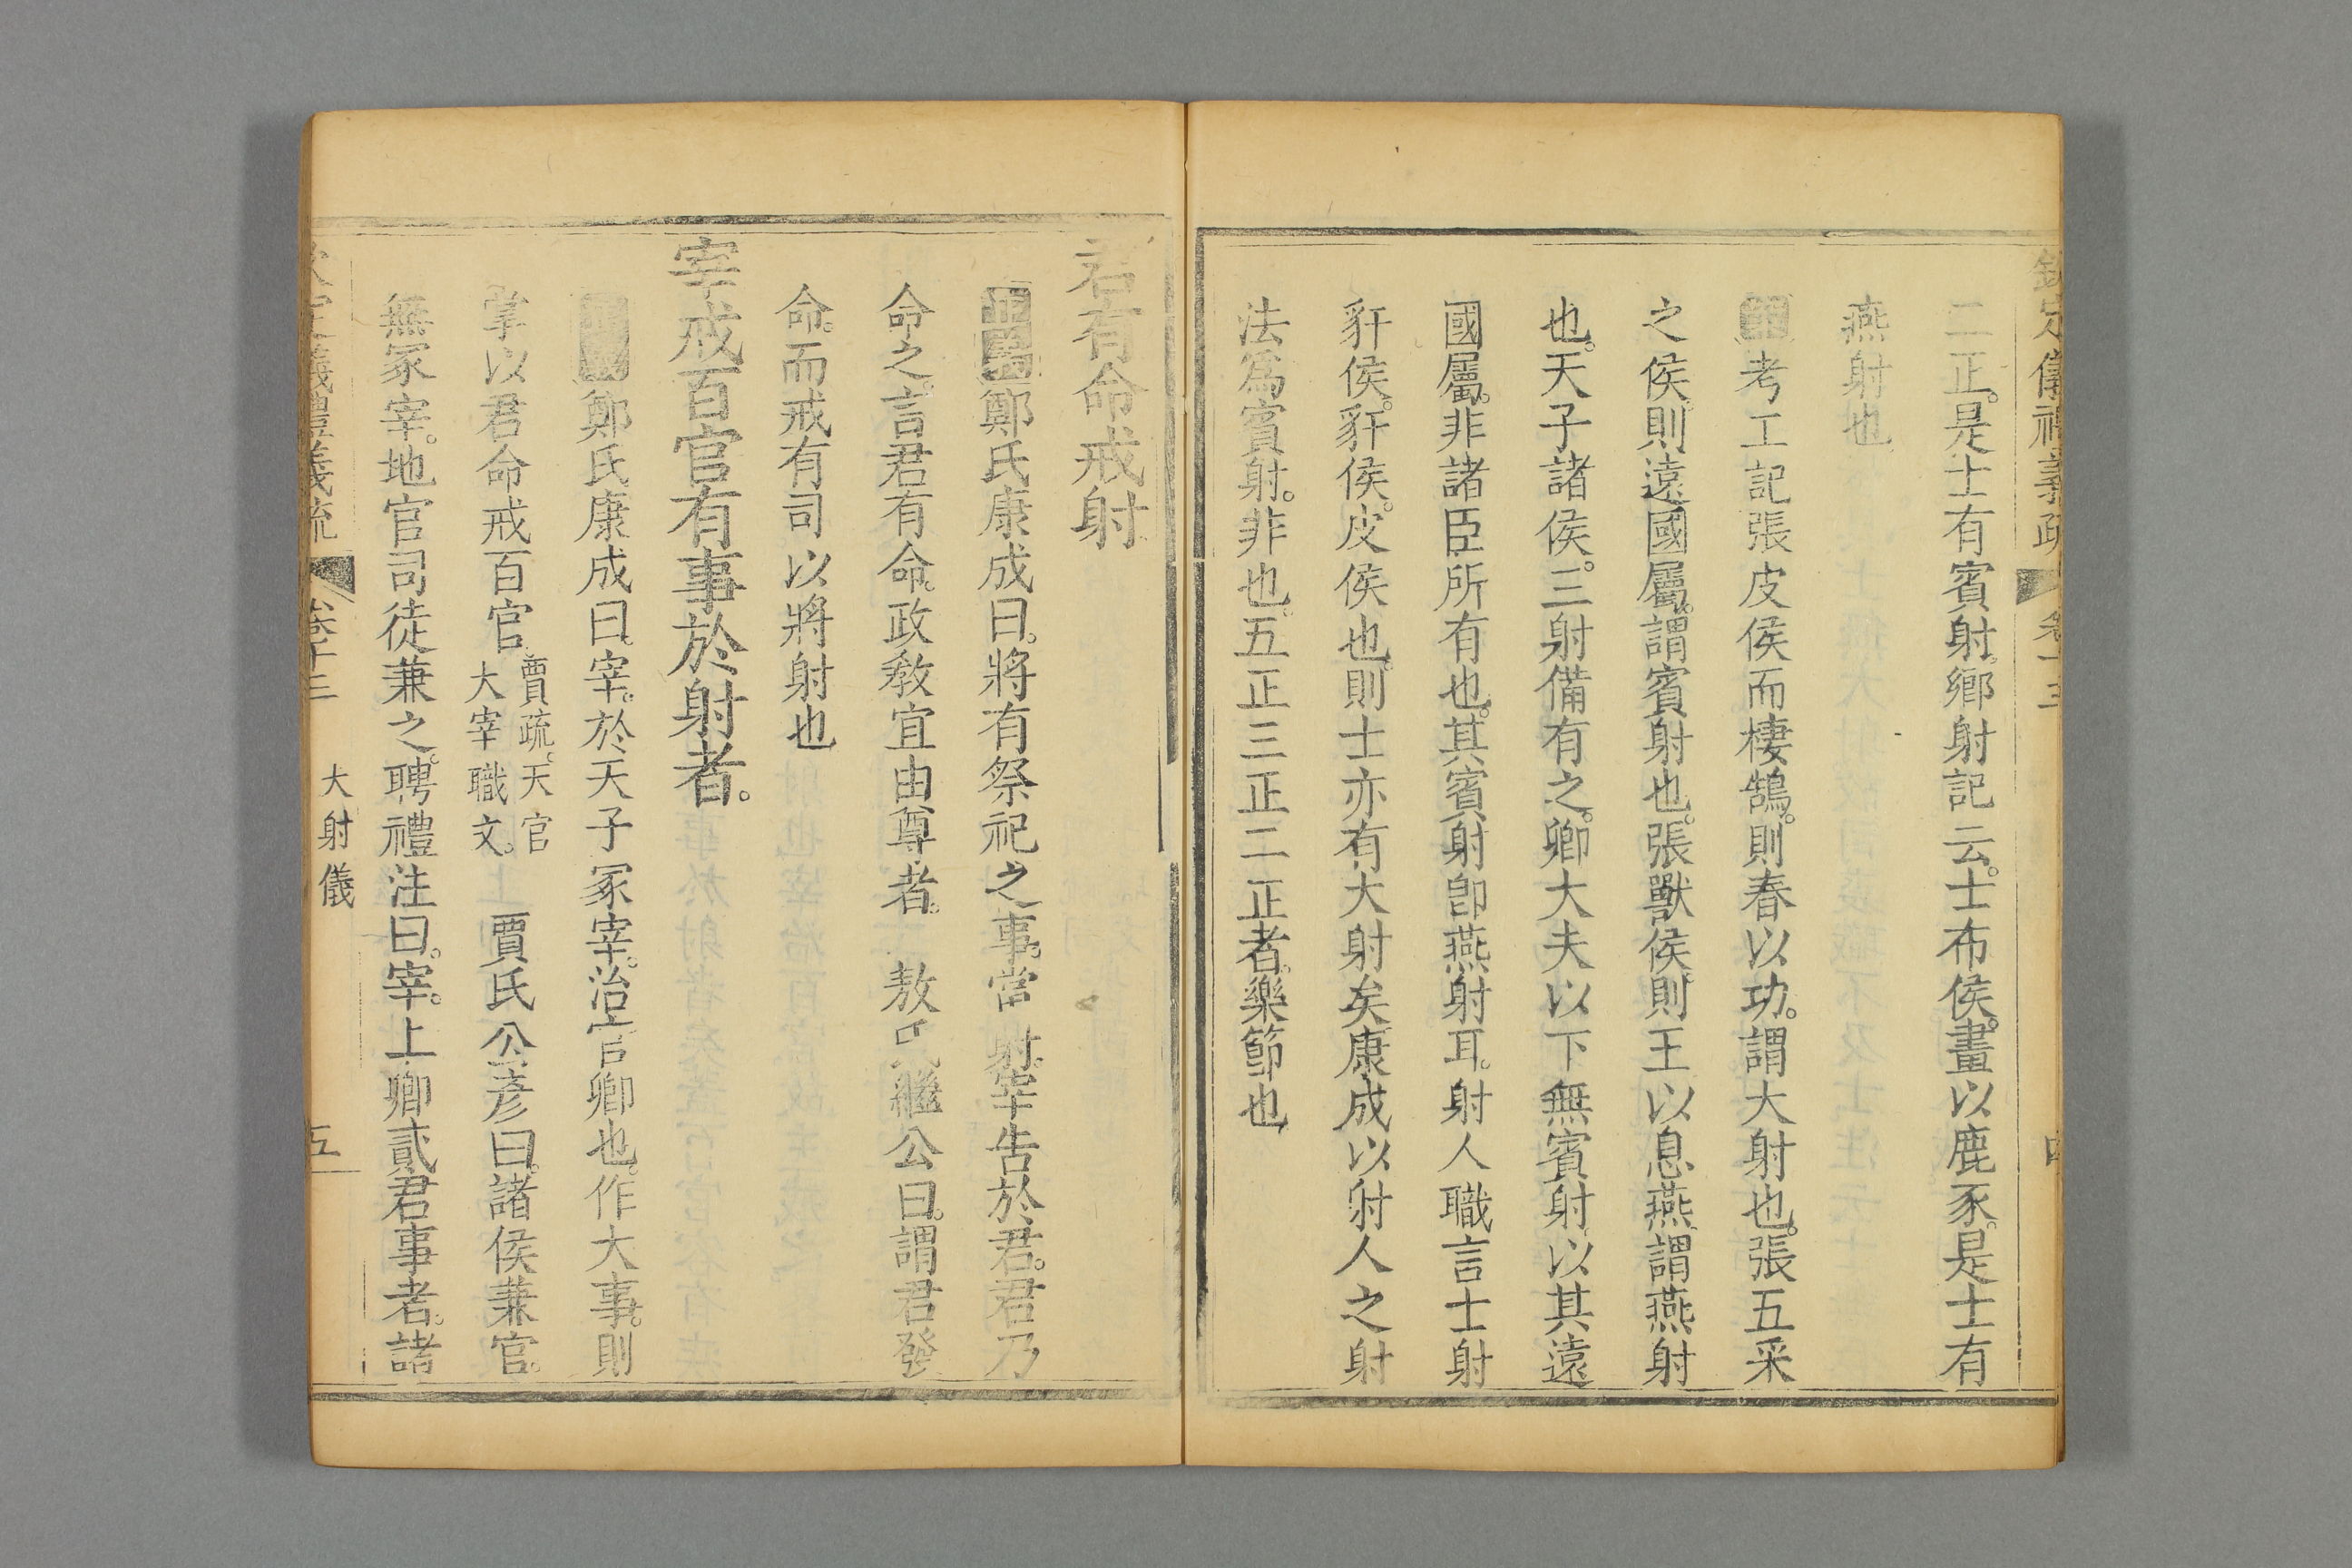 欽定儀禮義疏 卷十三 四
二正。是士有賓射。鄉射記云。士布侯。畫以鹿豕。是士有
燕射也
考工記張皮侯而棲鵠。則春以功。謂大射也。張五采
之侯則遠國屬。謂賓射也。張獸侯。則王以息燕。謂燕射
也。天子諸侯。三射備有之。卿大夫以下無賓射。以其遠
國屬。非諸臣所有也。其賓射卽燕射耳。射人職言士射
豻侯。豻侯。皮侯也。則士亦有大射矣康成以射人之射
法爲賓射。非也。五正三正二正者。樂節也
君有命戒射
正義鄭氏康成曰。將有祭祀之事。當射。宰告於君。君乃
命之。言君有命。政敎宜由尊者。 敖氏繼公曰。謂君發
命。而戒有司以將射也
宰戒百官有事於射者。
鄭氏康成曰。宰。於天子冢宰。治官卿也。作大事。則
掌以君命戒百官。賈疏。天官大宰職文。 賈氏公彥曰。諸侯兼官。
無冢宰。地官司徒兼之。聘禮注曰。宰。上卿貳君事者。諸
欽定儀禮義疏 卷十三 大射儀 五